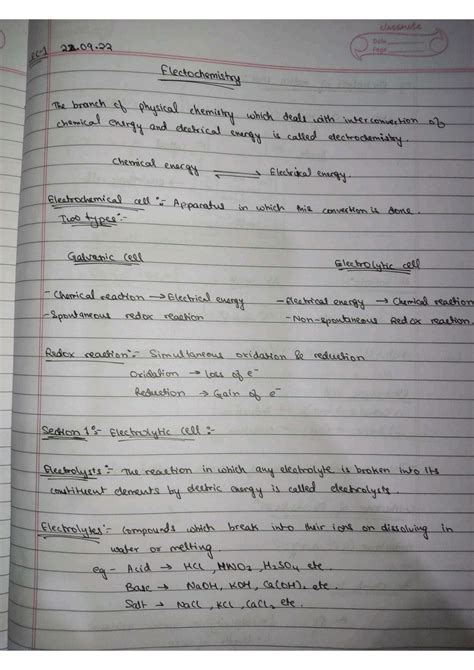 classmate
Date
Page
LC-1 22.09.22
Electochemistry
The branch of physical chemistry which deals with interconvertion of
chemical energy and electrical energy is called electrochemistry.
Chemical energy ⇌ Electrical energy.
Electrochemical cell :- Apparatus in which this convertion is done.
Two types :-
Galvanic cell Electrolytic cell
- Chemical reaction → Electrical energy - Electrical energy → Chemical reaction
- Spontaneous redox reaction - Non-spontaneous Redox reaction.
Redox reaction :- Simultaneous oxidation & reduction
Oxidation → loss of e⁻
Reduction → Gain of e⁻
Section 1 :- Electrolytic cell :-
Electrolysts :- The reaction in which any electrolyte is broken into its
constituent elements by electric energy is called electrolysts.
Electrolytes :- Compounds which break into their ions on dissolving in
water or melting.
eg - Acid → HCl, HNO₃, H₂SO₄ etc
Base → NaOH, KOH, Ca(OH)₂ etc
Salt → NaCl, KCl, CaCl₂ etc.